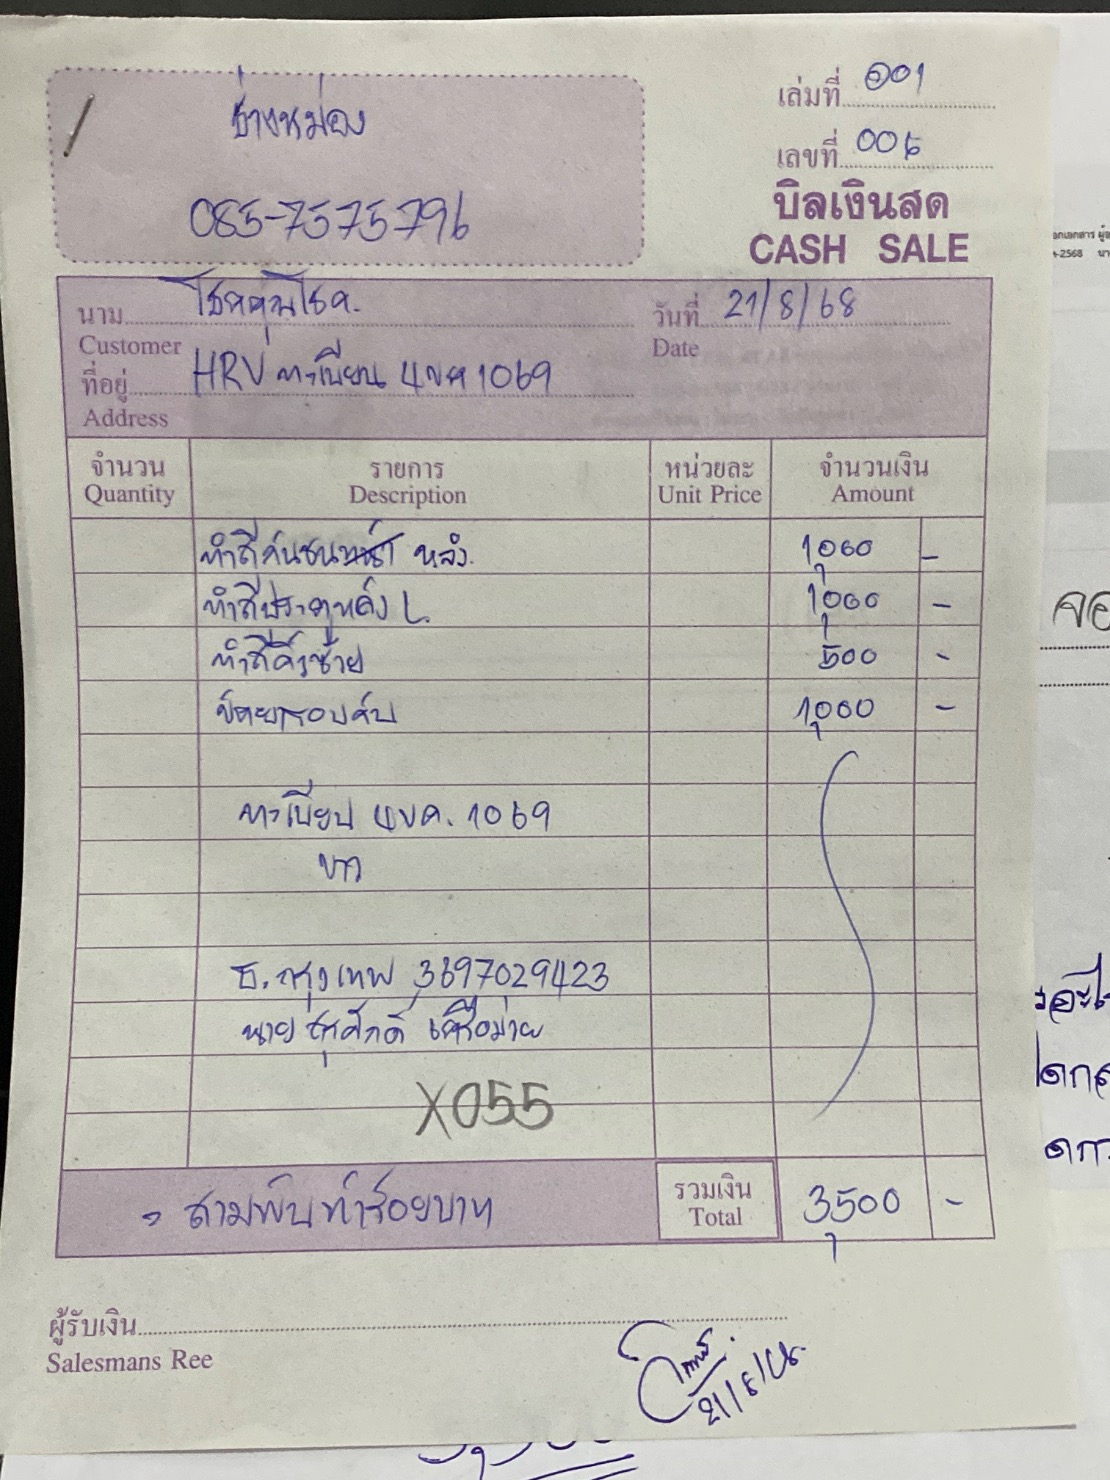 ช่างหม่อง
085-7575796
เล่มที่ 001
เลขที่ 006
บิลเงินสด
CASH SALE
นาม โชคคูณโชค.
Customer
วันที่ 21/8/68
Date
ที่อยู่ HRV ทะเบียน 4ขค 1069
Address
จำนวน รายการ หน่วยละ จำนวนเงิน
Quantity Description Unit Price Amount
ทำสีกันชน หลัง. 1,000 -
ทำสีประตูหลัง L. 1,000 -
ทำสีคิ้วซ้าย 500 -
ขัดยารอบคัน 1,000 -
ทะเบียน 4ขค. 1069
ขาว
ธ.กรุงเทพ 3697029423
นาย
X055
= สามพันห้าร้อยบาท
รวมเงิน 3,500 -
Total
ผู้รับเงิน
Salesmans Ree
21/8/68.